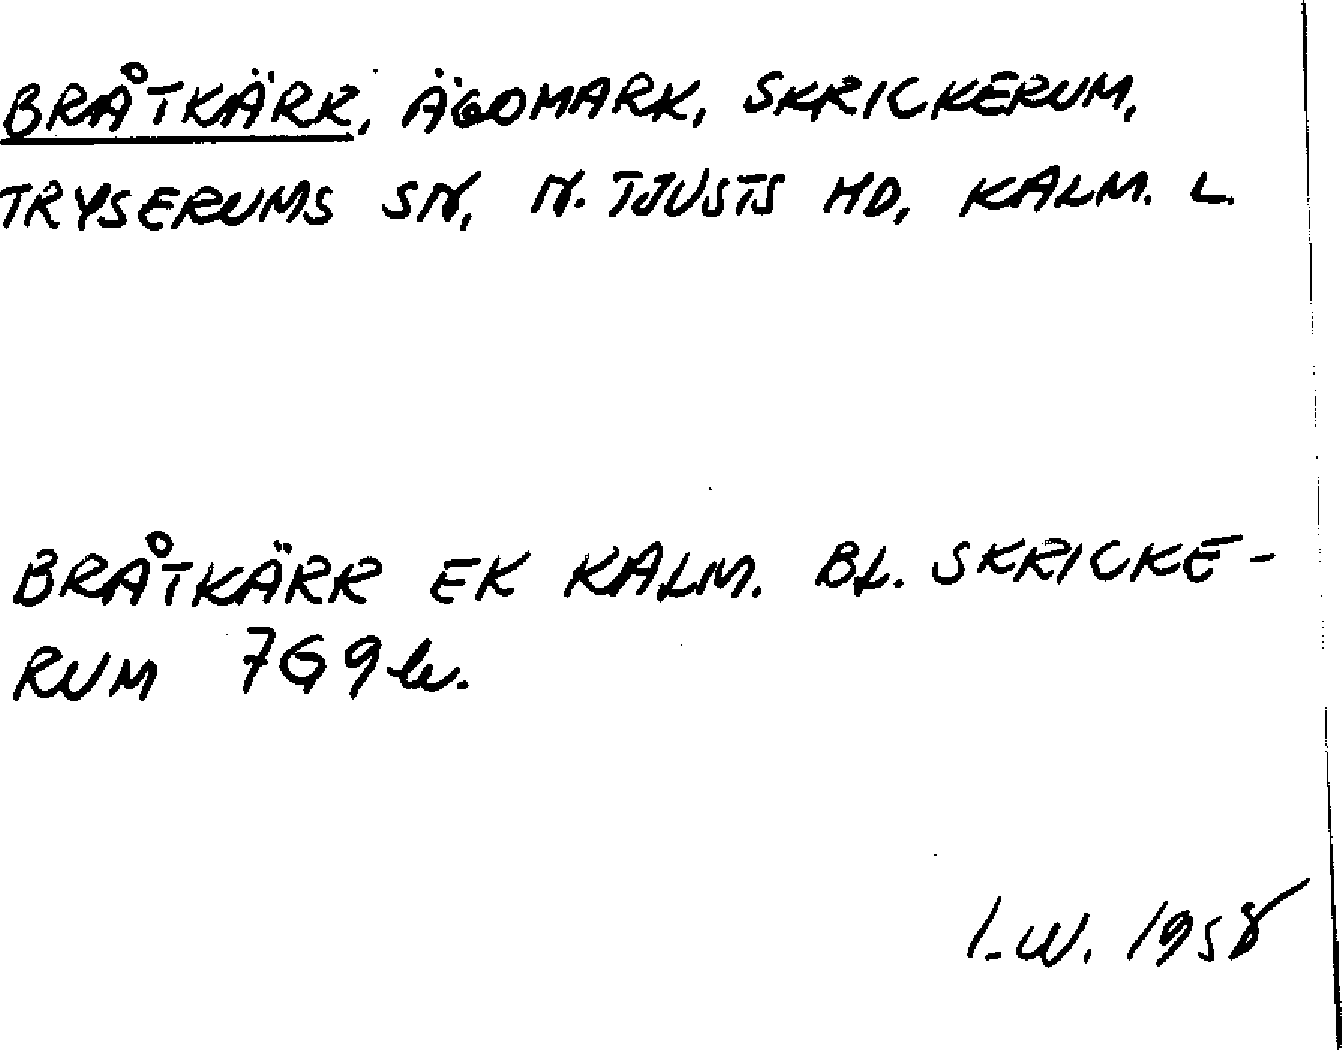 BRÅTKÄRR, ÄGOMARK, SKRICKERUM,
TRYSERUMS SN, N. TJUSTS HD, KALM. L.
BRÅTKÄRR EK KALM. BL. SKRICKE-
RUM 7G9b.
I.W. 1958